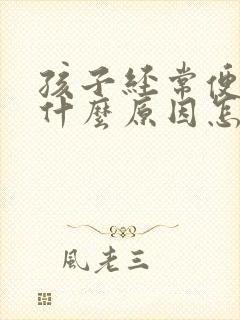 孩子經常便
什麼原因怎
風老三